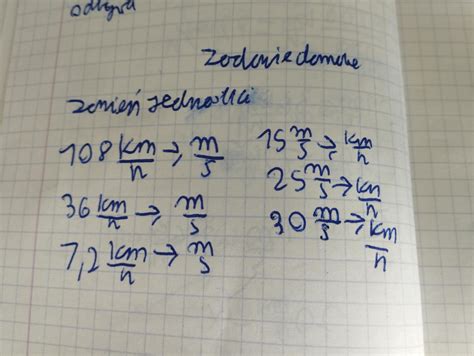 Zadanie domowe
Zamień jednostki
108 km/h → m/s
36 km/h → m/s
7,2 km/h → m/s
15 m/s → km/h
25 m/s → km/h
30 m/s → km/h